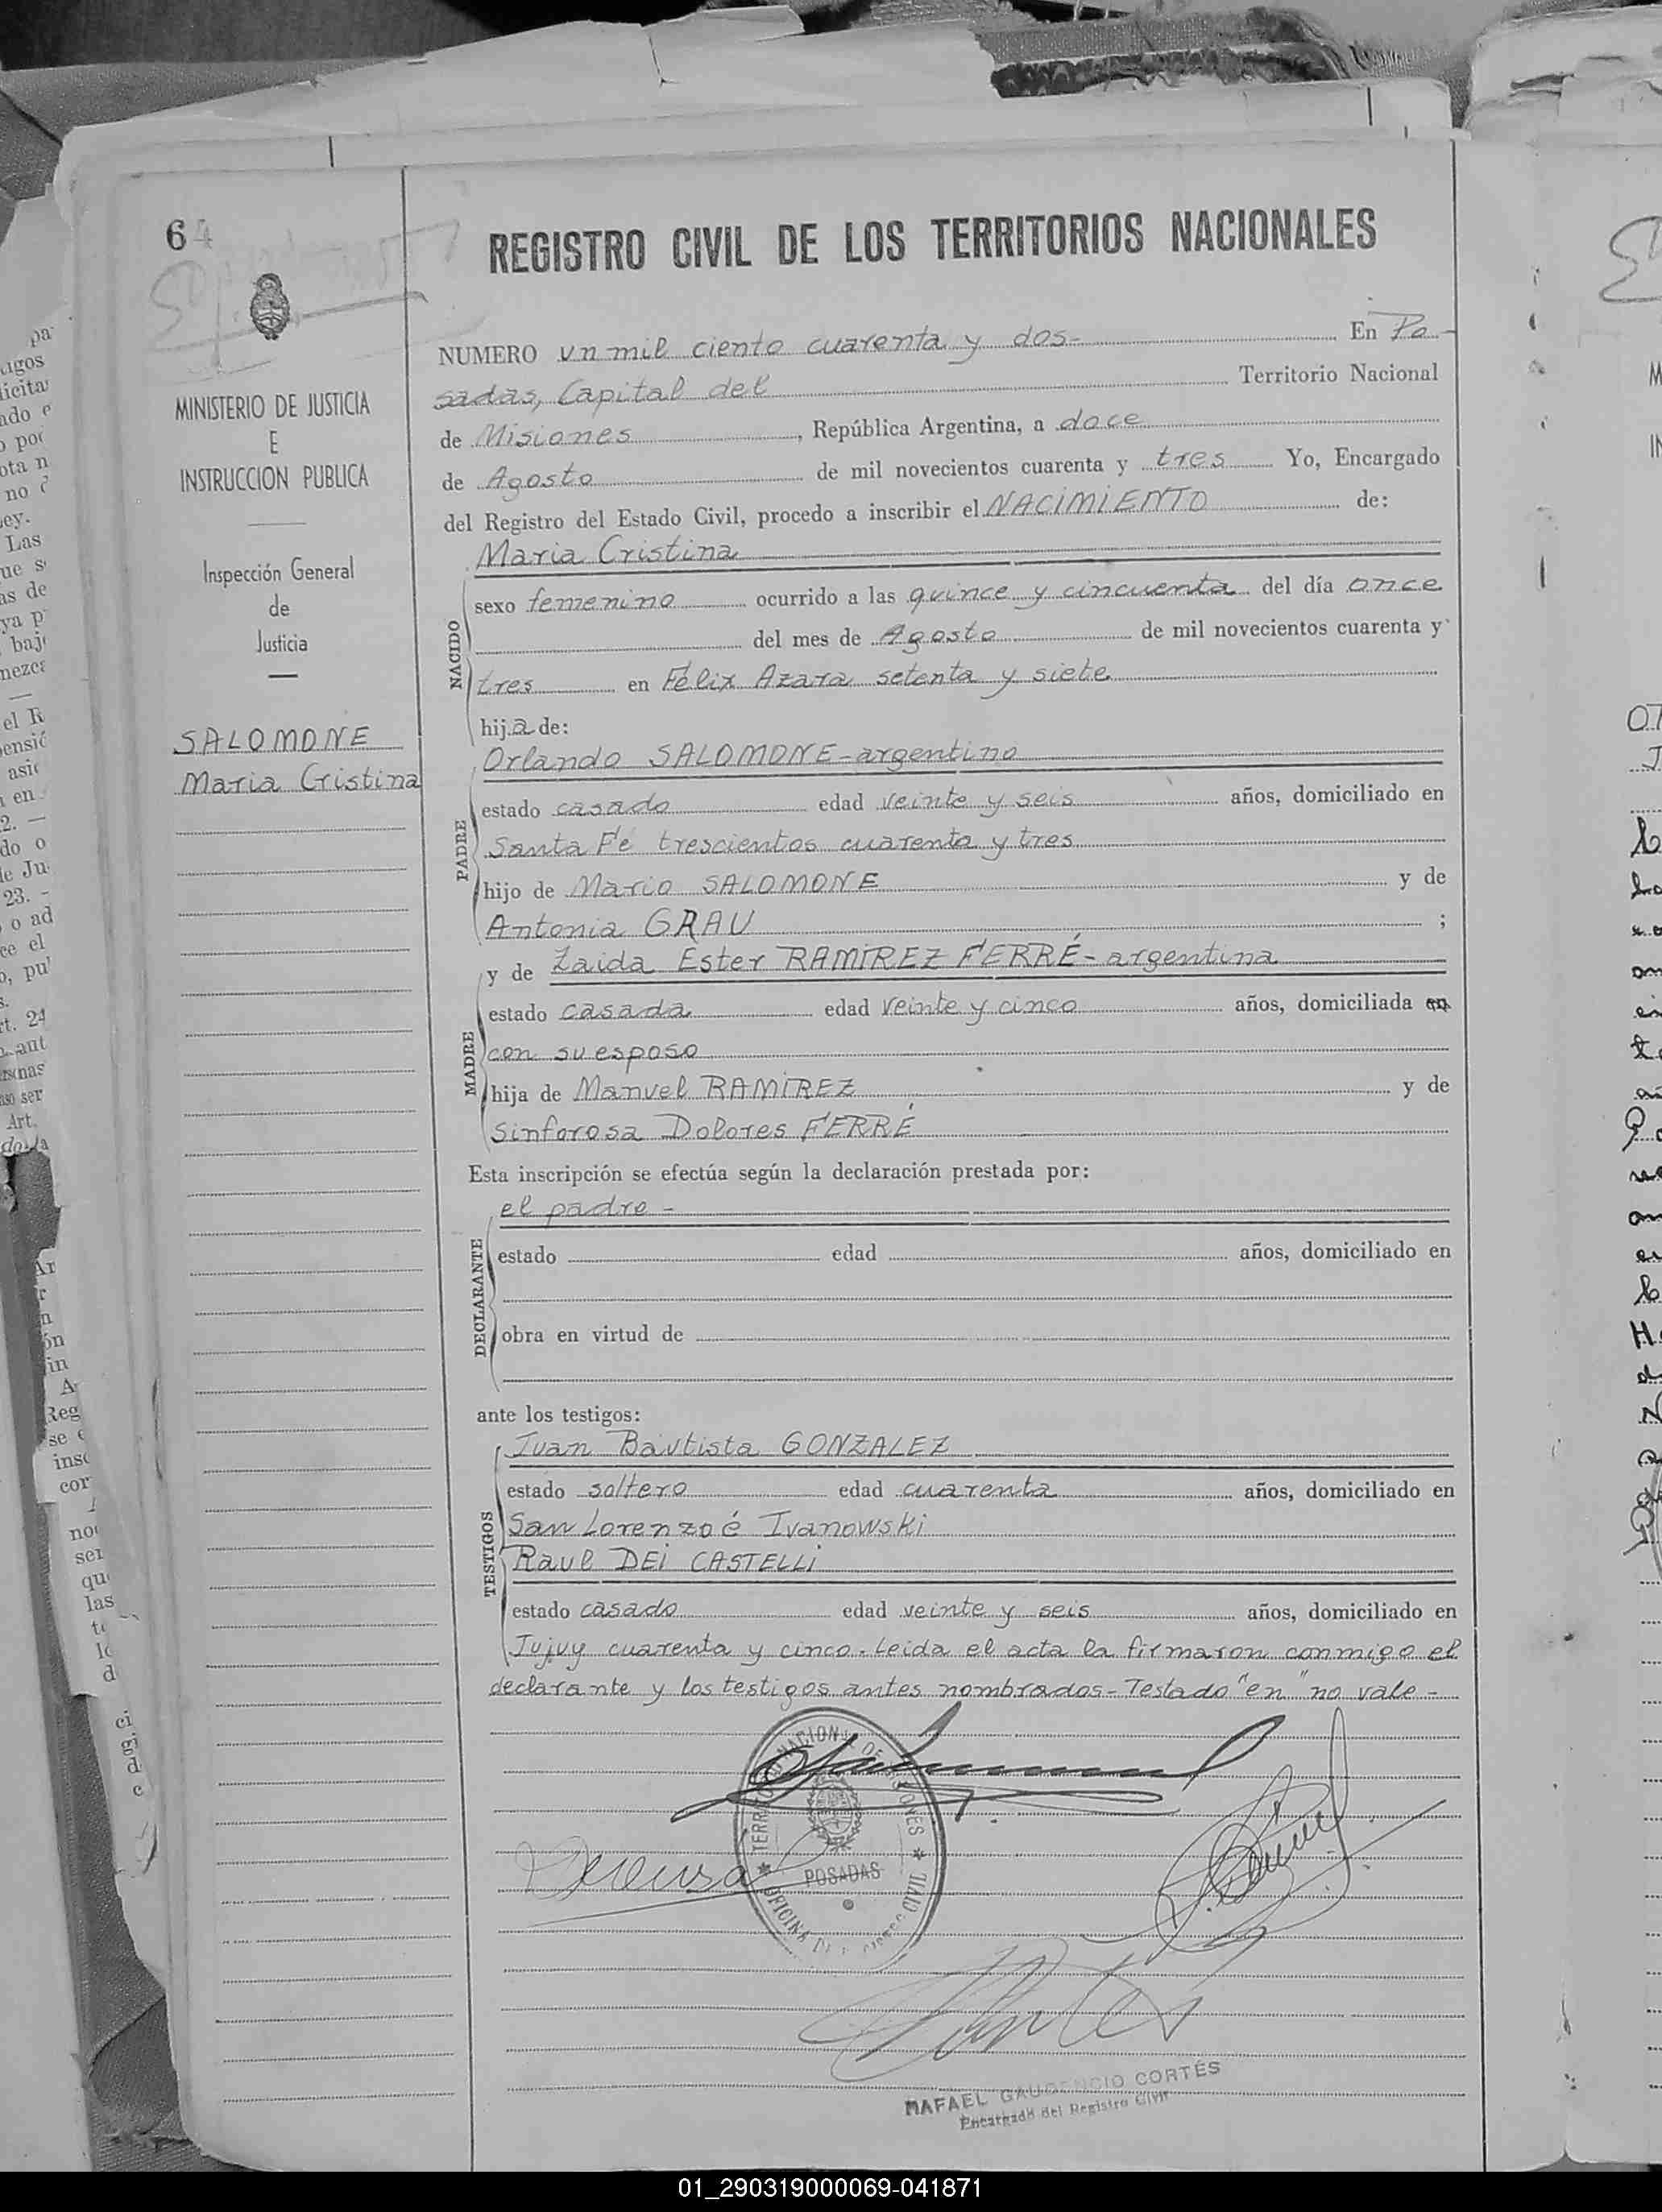 64
MINISTERIO DE JUSTICIA
E
INSTRUCCION PUBLICA
Inspección General
de
Justicia
SALOMONE
Maria Cristina
REGISTRO CIVIL DE LOS TERRITORIOS NACIONALES
NUMERO un mil ciento cuarenta y dos- En Po-
sadas, Capital del Territorio Nacional
de Misiones, República Argentina, a doce
de Agosto de mil novecientos cuarenta y tres Yo, Encargado
del Registro del Estado Civil, procedo a inscribir el NACIMIENTO de:
Maria Cristina
NACIDO
sexo femenino ocurrido a las quince y cincuenta del día once
del mes de Agosto de mil novecientos cuarenta y
tres en Félix Azara setenta y siete
hija de:
Orlando SALOMONE-argentino
PADRE
estado casado edad veinte y seis años, domiciliado en
Santa Fé trescientos cuarenta y tres
hijo de Mario SALOMONE y de
Antonia GRAU ;
y de Zaida Ester RAMIREZ FERRÉ-argentina
MADRE
estado casada edad veinte y cinco años, domiciliada en
con su esposo
hija de Manuel RAMIREZ y de
Sinforosa Dolores FERRÉ
Esta inscripción se efectúa según la declaración prestada por:
el padre -
DECLARANTE
estado edad años, domiciliado en
obra en virtud de
ante los testigos:
Juan Bautista GONZALEZ
TESTIGOS
estado soltero edad cuarenta años, domiciliado en
San Lorenzo é Ivanowski
Raul DEI CASTELLI
estado casado edad veinte y seis años, domiciliado en
Jujuy cuarenta y cinco. Leida el acta la firmaron conmigo el
declarante y los testigos antes nombrados-Testado "en" no vale-
POSADAS
RAFAEL GAUDENCIO CORTÉS
Encargado del Registro Civil
01_290319000069-041871